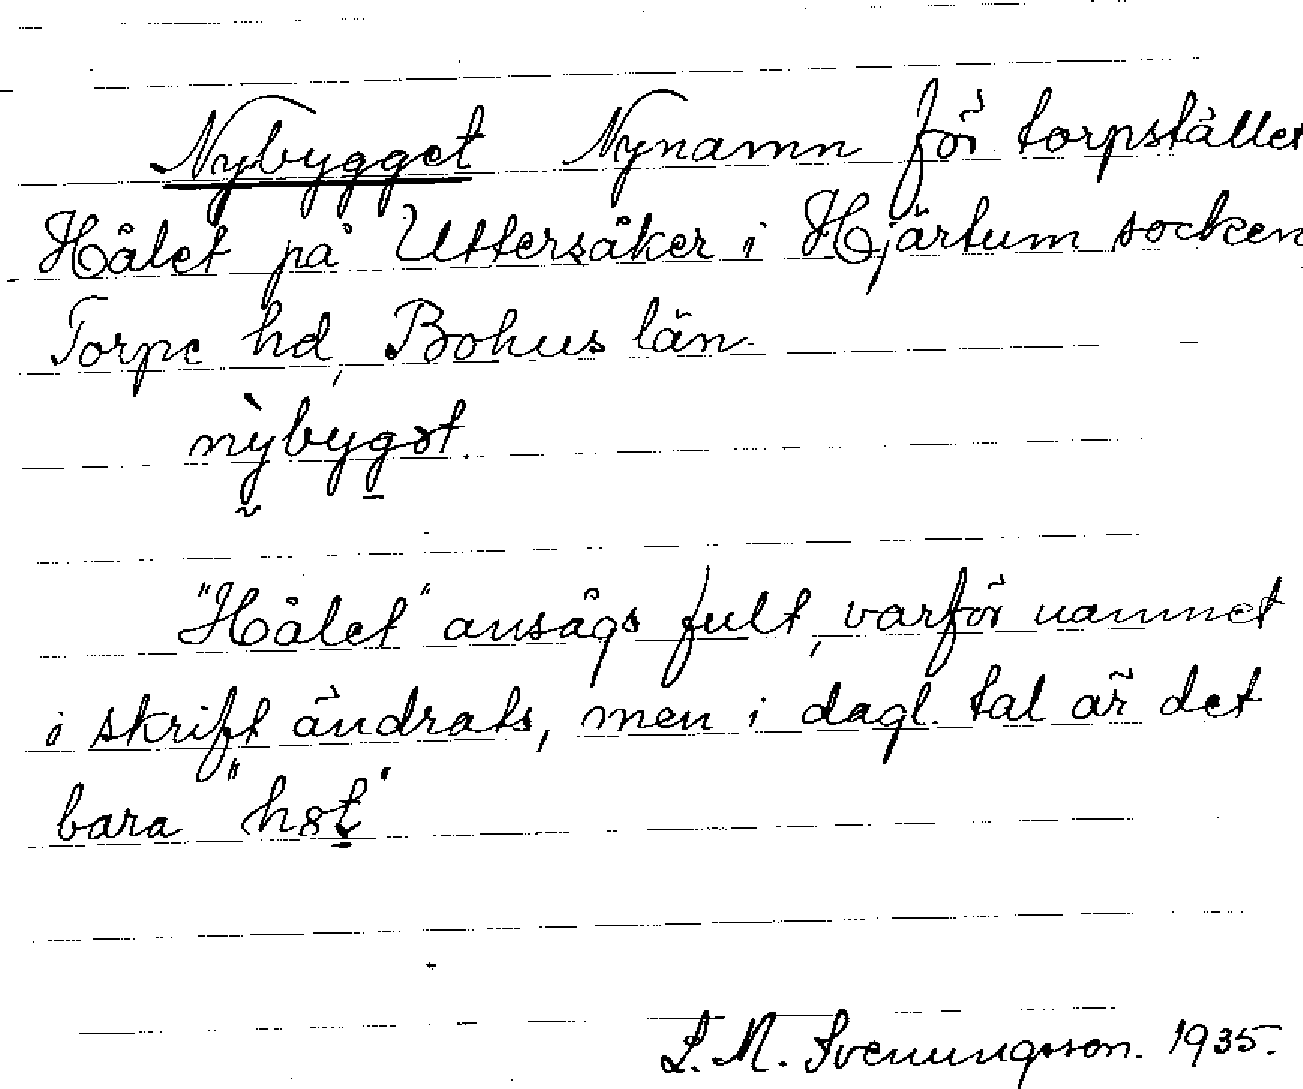 Nybygget Nynamn för torpstället
Hålet på Uttersåker i Hjärtum socken
Torpe hd, Bohus län.
nỳbygət.
"Hålet" ansågs fult, varför namnet
i skrift ändrats, men i dagl. tal är det
bara
L. M. Svenungsson. 1935.